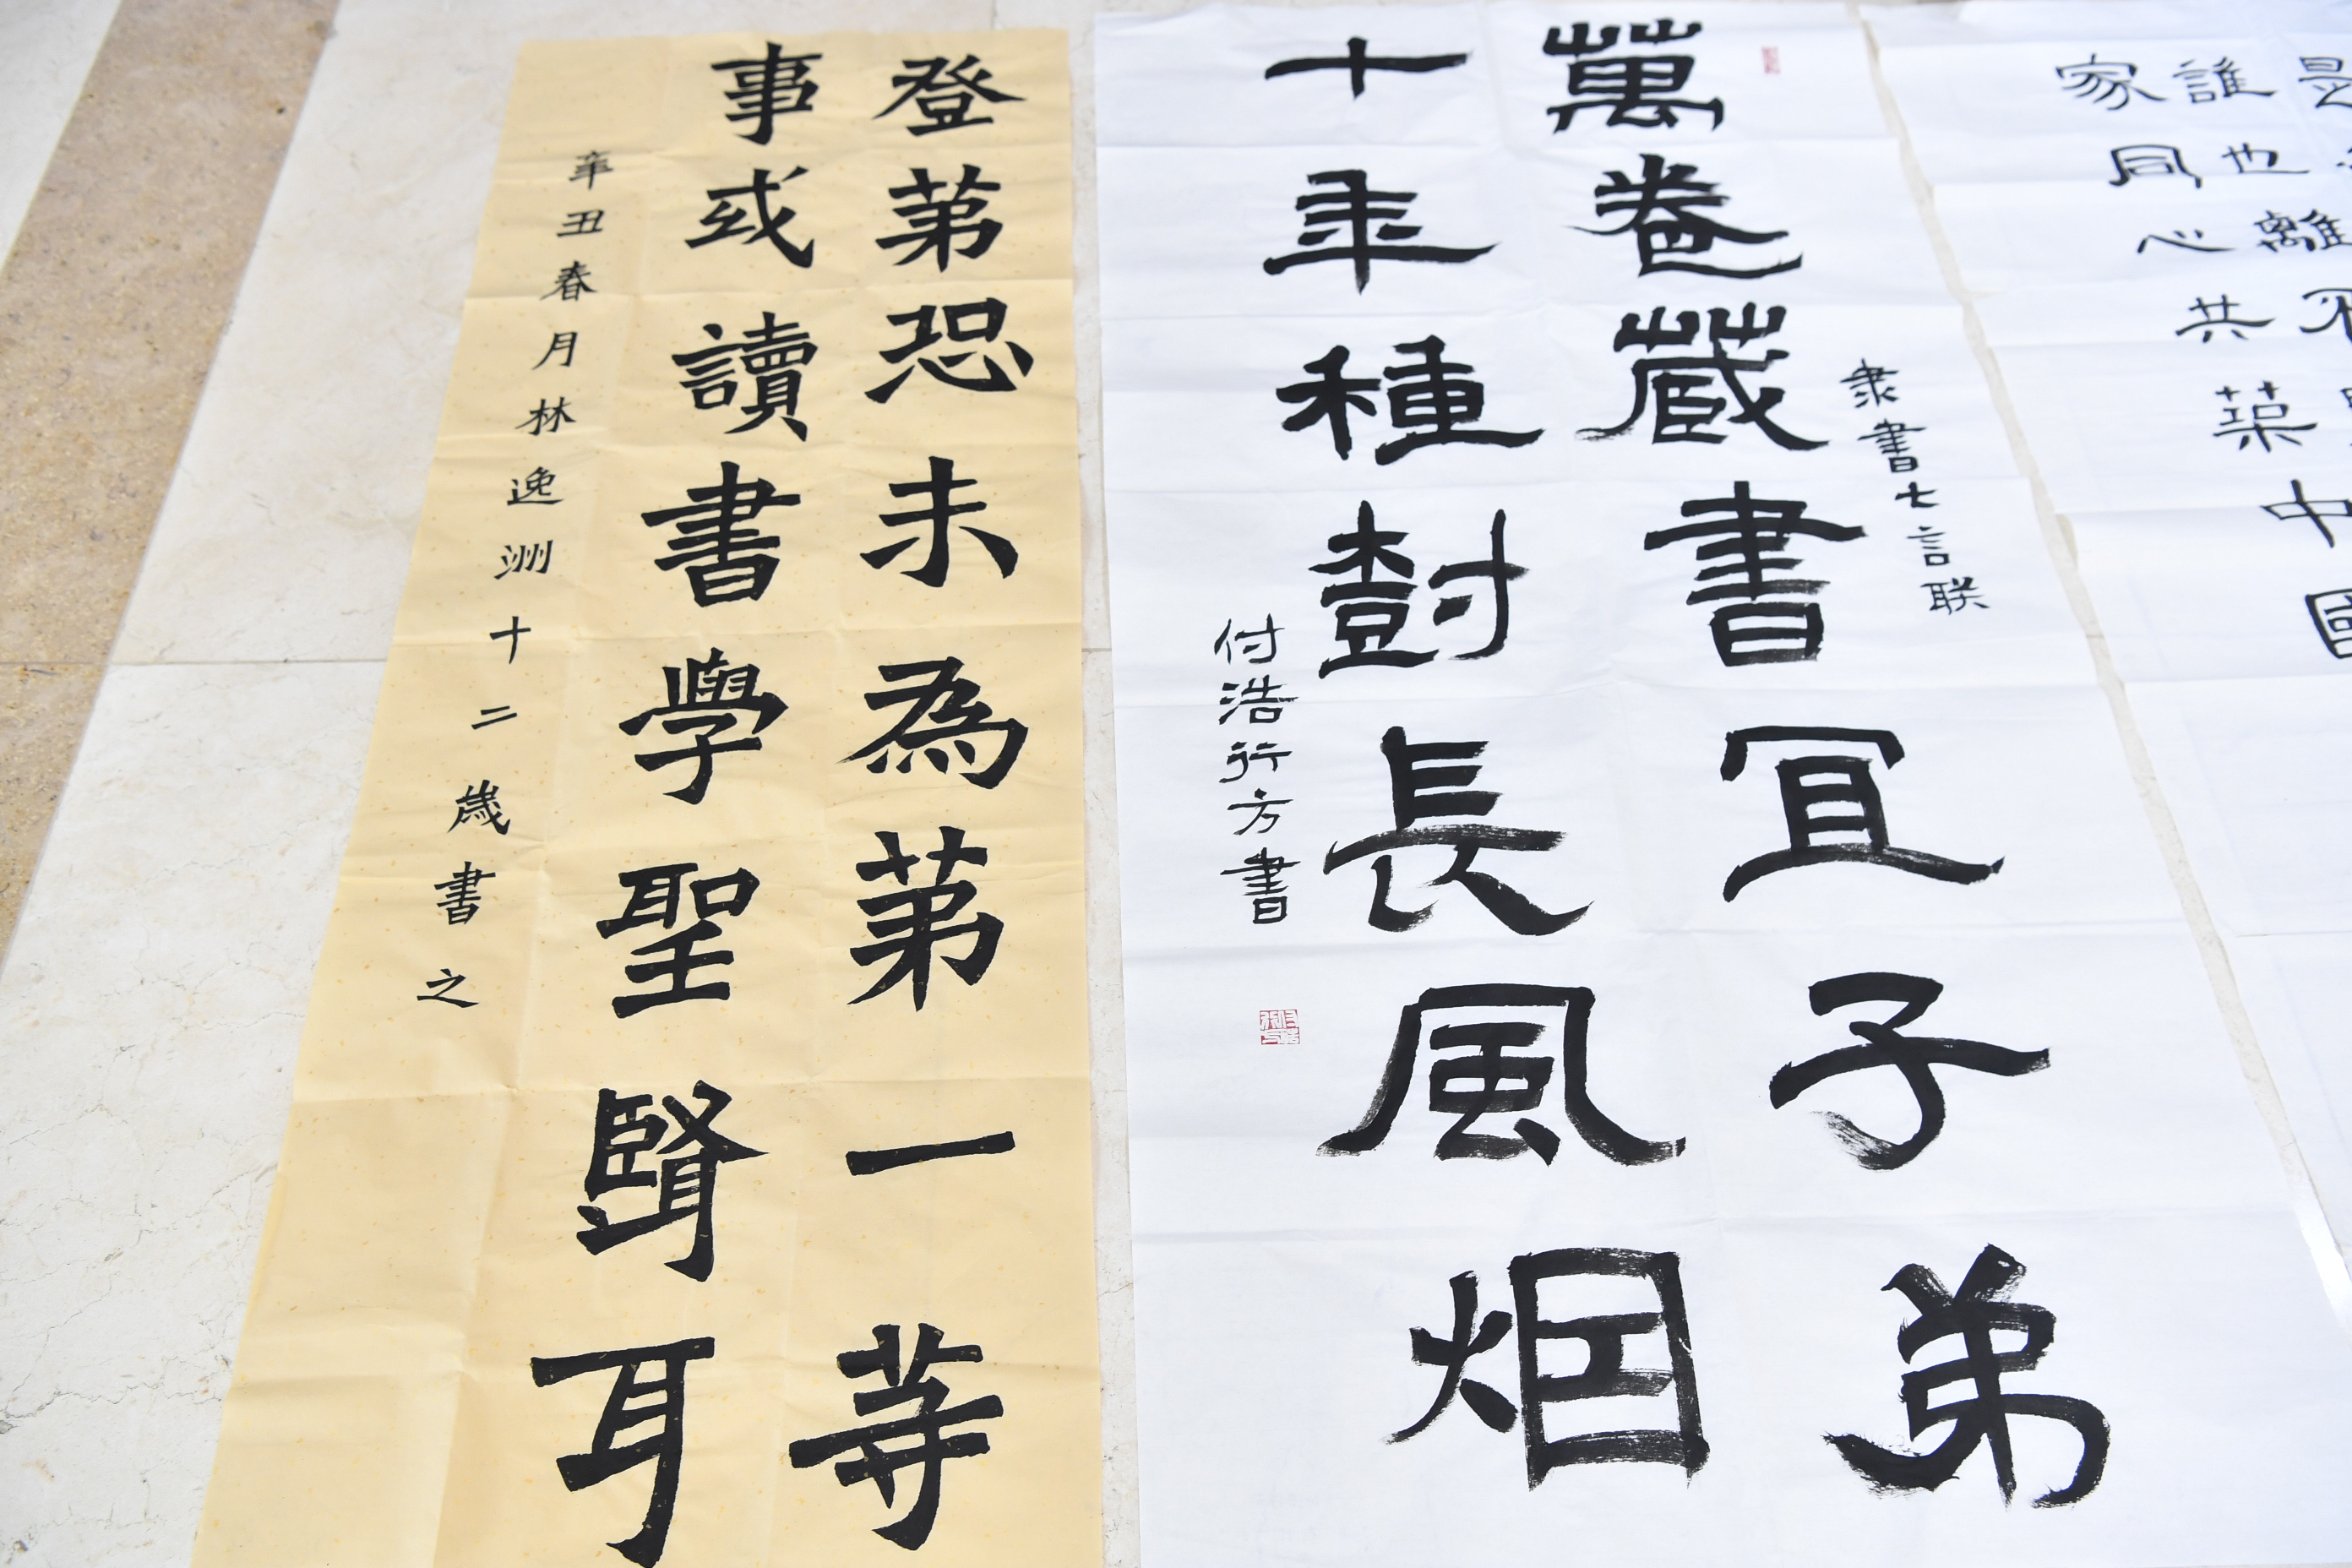 是
誰也離不
家同心共築中國
隶書七言联
萬卷藏書宜子弟
十年種樹長風烟
付浩行方書
登第恐未為第一等
事或讀書學聖賢耳
辛丑春月林逸洲十二歲書之